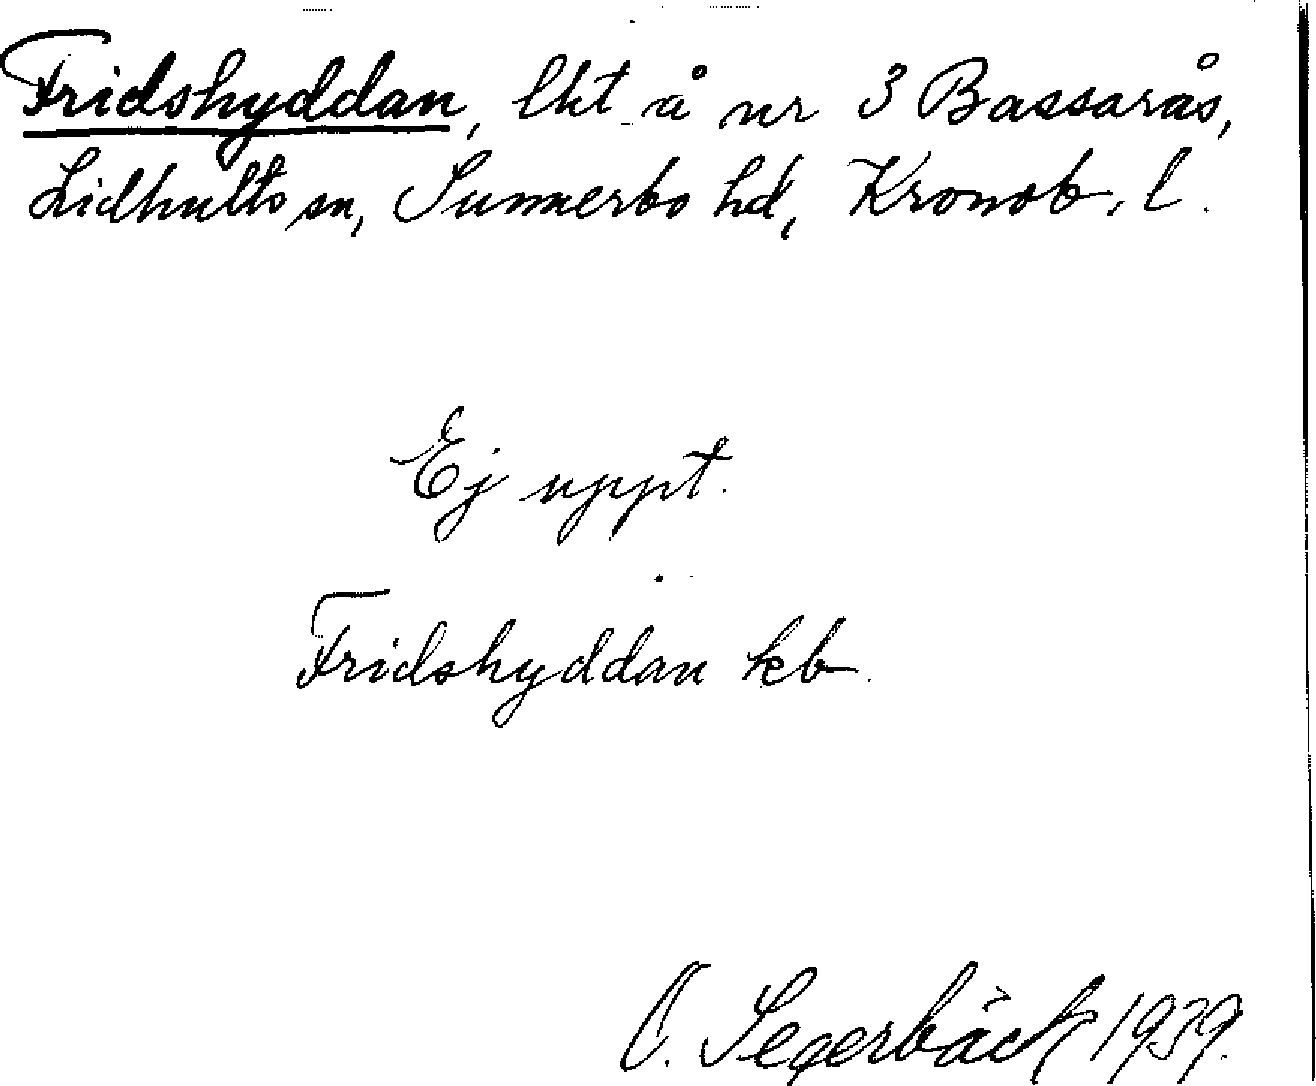 Fridshyddan, lht å nr 3 Bassarås,
Lidhults sn, Sunnerbo hd, Kronob. l.
Ej uppt.
Fridshyddan kb.
O. Segerbäck 1939.